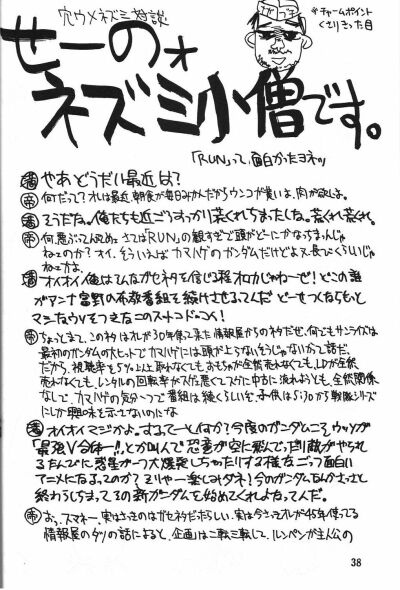 穴ウメネズミ対談
*チャームポイント
くさりきった目
せーのォ
ネズミ小僧です。
「RUN」って、面白かったヨネッ
やあどうだい最近は?
何だって?オレは最近、朝食が毎日みかんだからウンコが黄いよ、肉が欲しよ。
そうだな。俺たちも近ごろすっかり荒くれちまったしな。荒くれ荒くれ。
何悪ぶってんだてめェ さては「RUN」の観すぎで頭がどーにかなっちまったんじゃ
ねェのか?オイ、そういえばカマハゲのガンダムだけどよ又長びくらしいじゃ
ねェかよ
オイオイ俺はてんなガセネタを信じる程オロカじゃねーぜ!どこの誰
がアンナ富野の布教番組を続けさせるてんだ どーせつくならもっと
マシなウソをつきなこのスットコドッコイ!
ちょっとまて、このネタはオレが30年使って来た情報屋からのネタだぜ、何でもサンライズは
最初のガンダムの大ヒットでカマハゲには頭が上らないそうじゃないかって話だ。
だから、視聴率を5%以上取れなくても、おもちゃが全然売れなくても、LDが全然
売れなくても、レンタルの回転率がスゲェ悪くてスグに中古に流れようとも、全然関係
なしで、カマハゲの気分一つで番組は続くらしいぞ、子供は5:30から戦隊シリーズ
にしか興味を示さないのにな
オイオイマジかよ。するってーと何か?今度のガンダとこうウッソが
「最強V合体ー!!」とか叫んで恐竜が空に飛んで行ったり敵がやられ
るたんびに惑星が一つ大爆発しちゃったりする様なごっつ面白い
アニメになるってのか?そりゃー楽しみダネ!今のガンダムなんかさっさと
終わらしちまってその新ガンダムを始めてくれよなってんだ。
おっ、スマネー、実はさっきのはガセネタだったらしい、実は今さっきオレが45年使ってる
情報屋のダリの話によると、企画は二転三転して、ルンペンが主人公の
38